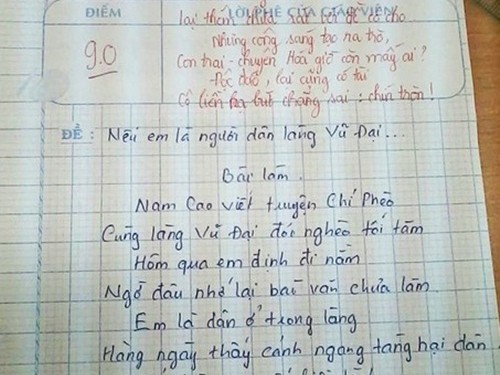 ĐIỂM
LỜI PHÊ CỦA GIÁO VIÊN
9.0
lại thêm
cho
Nhưng cũng sáng tạo ra trò,
Con trai - chuyên Hoá giờ còn mấy ai?
Độc đáo, lại cũng có tài
Cô liền hạ bút chẳng sai: chín tròn!
ĐỀ: Nếu em là người dân làng Vũ Đại...
Bài làm.
Nam Cao viết truyện Chí Phèo
Cùng làng Vũ Đại đói nghèo tối tăm
Hôm qua em định đi nằm
Ngờ đâu nhớ lại bài văn chưa làm
Em là dân ở trong làng
Hàng ngày thấy cảnh ngang tàng hại dân